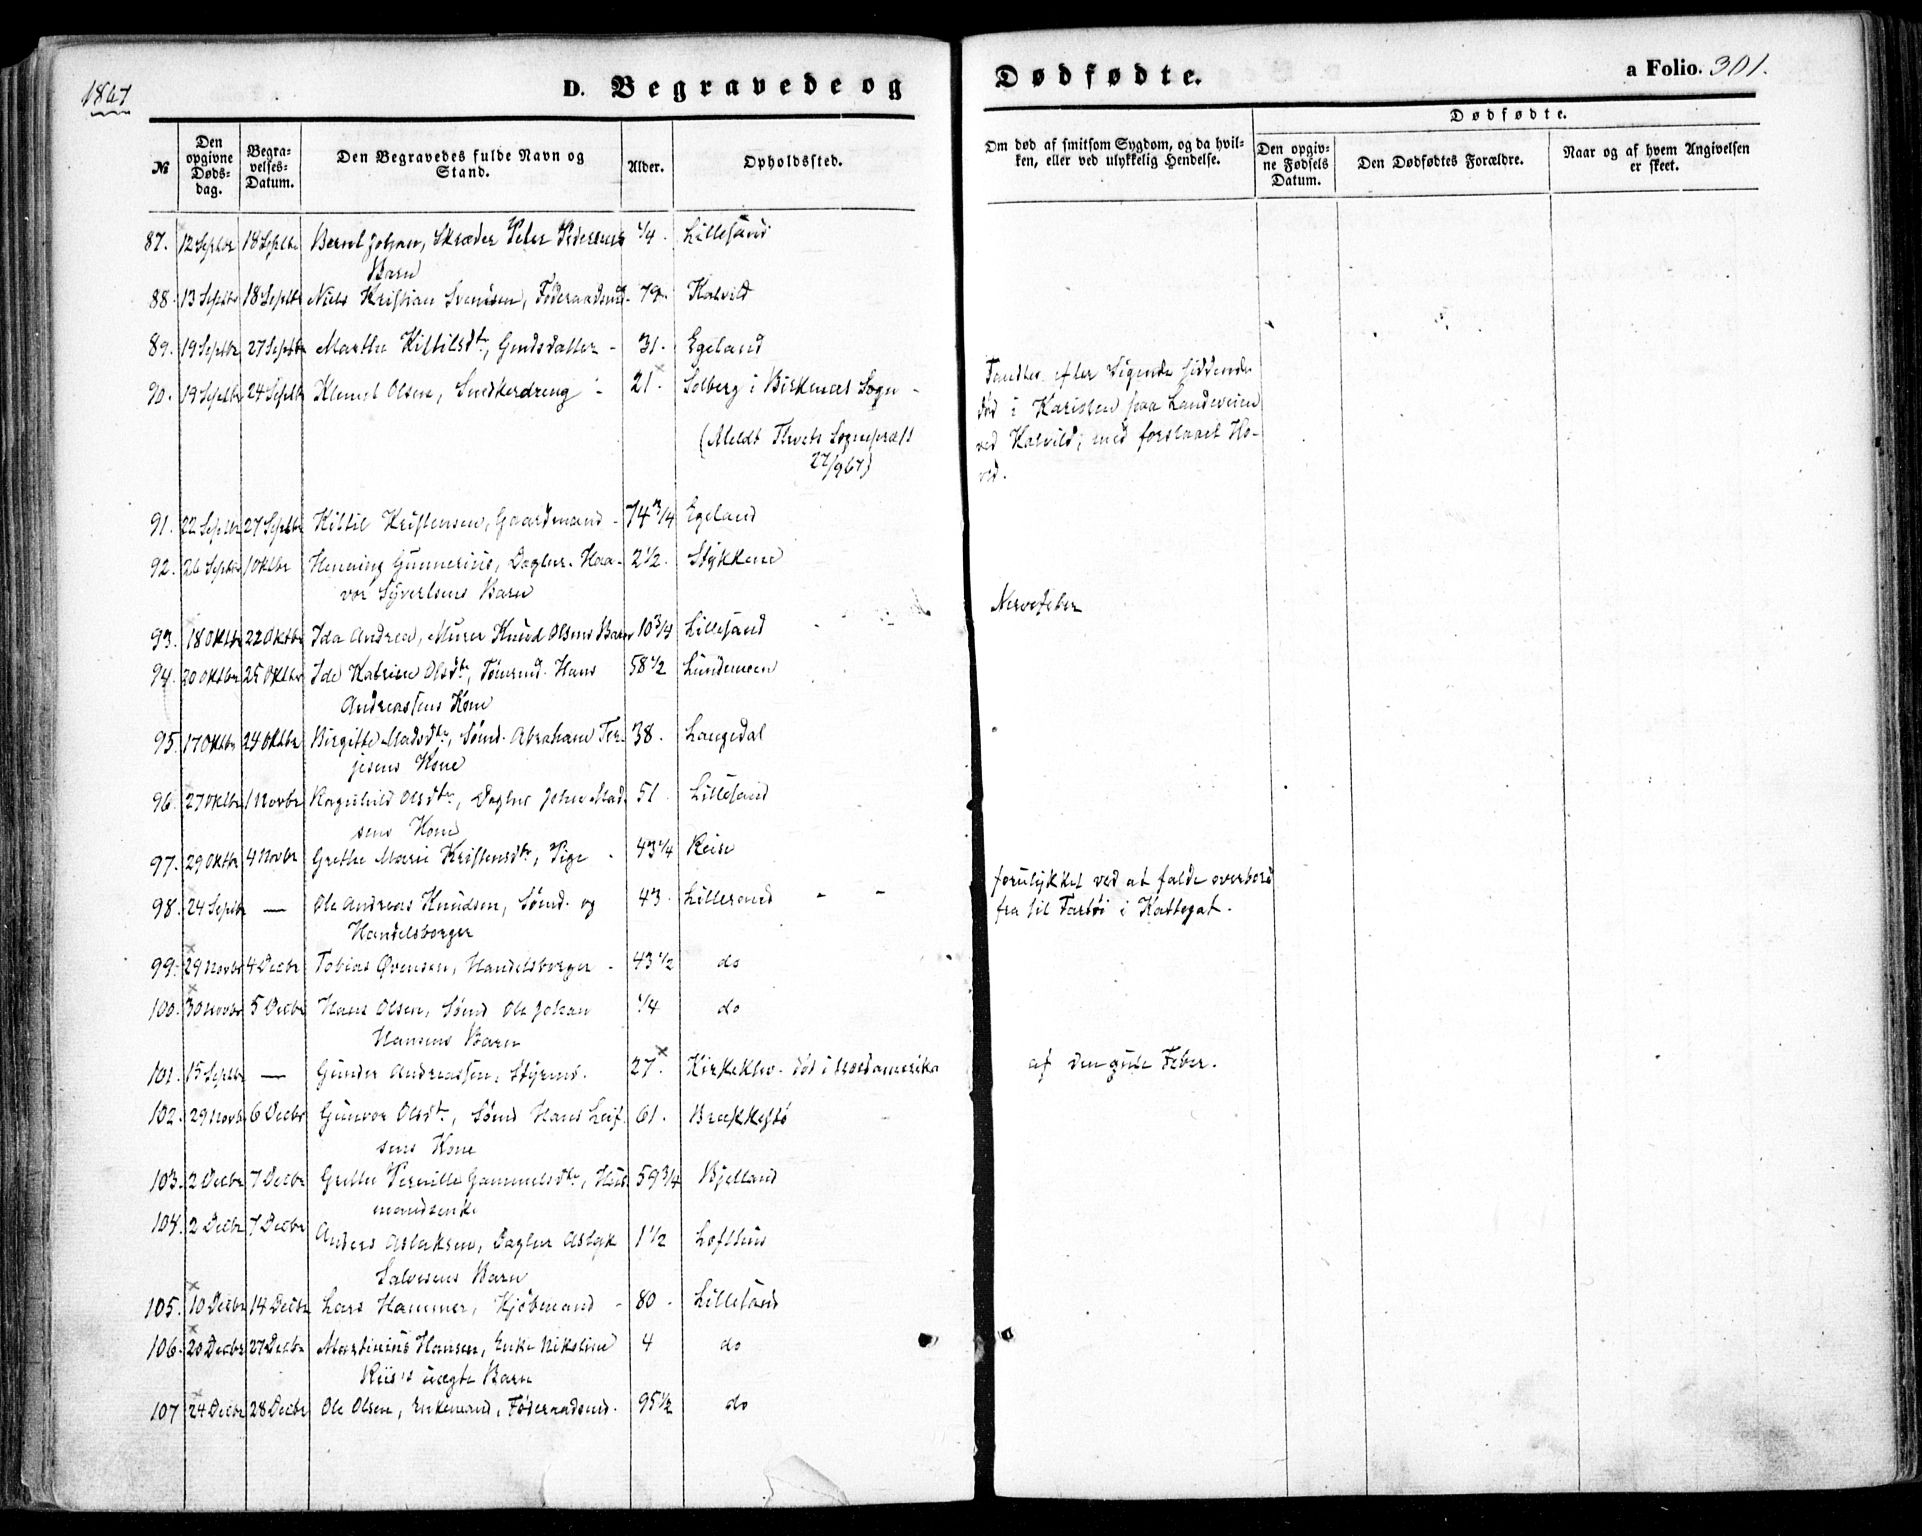 1867
D. Begravede og Dødfødte.
a Folio. 301.
№
Den opgivne Dødsdag.
Begravelses-Datum.
Den Begravedes fulde Navn og Stand.
Alder.
Opholdssted.
Om død af smitsom Sygdom, og da hvilken, eller ved ulykkelig Hendelse.
Dødfødte.
Den opgivne Fødsels Datum.
Den Dødfødtes Forældre.
Naar og af hvem Angivelsen er skeet.
87. 12 Septbr 18 Septbr Bernt Johan, Skræder Peter Pedersens 1/4. Lillesand
Barn
88. 13 Septbr 18 Septbr Niels Kristian Svendsen, Føderaadsmd. 79. Kalvild
89. 19 Septbr 27 Septbr Marthe Kittilsdtr, Gmdsdatter - 31. Egeland
90. 19 Septbr 24 Septbr Klemet Olsen, Snedkerdreng - 21. Solberg i Birkenæs Sogn -
(Meldt Tvets Sognepræst
27/9 67)
Fandtes efter Sigende siddende
død i Karisten paa Landeveien
ved Kalvild, med forslaaet Ho-
ved.
91. 22 Septbr 27 Septbr Kittil Kristensen, Gaardmand - 74 3/4 Egeland
92. 26 Septbr 1 Oktbr Henning Gunnerius, Daglnr. Haa- 2 1/2. Stykkene
vor Syvertsens Barn
Nervefeber
93. 18 Oktbr 22 Oktbr Ida Andrea, Murer Knud Olsens Barn 10 3/4 Lillesand
94. 20 Oktbr 25 Oktbr Ide Katrine Olsdtr, Tømrmd. Hans 58 1/2 Lundemoen
Andreassens Kone
95. 17 Oktbr 24 Oktbr Birgitte Madsdtr, Sømd. Abraham Ter- 38. Langedal
jesens Kone
96. 27 Oktbr 1 Novbr Ragnhild Olsdtr, Daglnr John Mad- 51. Lillesand
sens Kone
97. 29 Oktbr 4 Novbr Grethe Marie Kristensdtr, Pige - 43 1/4 Reise
98. 24 Septbr — Ole Andreas Knudsen, Sømd. og 43. Lillesand - -
Handelsborger
forulykket ved at falde overbord
fra sit Fartøi i Kattegat.
99. 29 Novbr 4 Decbr Tobias Øvensen, Handelsborger - 43 1/2 do
100. 30 Novbr 5 Decbr Hans Olsen, Sømd Ole Johan 1/4 do
Hansens Barn
101. 15 Septbr — Gunder Andreassen, Styrmd. 27. Kirkeklev. død i Nordamerika af den gule Feber.
102. 29 Novbr 6 Decbr Gunvor Olsdtr, Sømd Hans Leif- 61. Brækkestø
sens Kone
103. 2 Decbr 7 Decbr Grethe Pernille Gammelsdtr, Hus- 59 3/4 Bjelland
mandsenke
104. 2 Decbr 7 Decbr Anders Aslaksen, Daglnr Aslak 1 1/2 Lofthus
Salvesens Barn
105. 10 Decbr 14 Decbr Lars Hammer, Kjøbmand - 80 - Lillesand
106. 20 Decbr 27 Decbr Martinius Hansen, Enke Nikoline 4 do
Riis's uægte Barn
107 24 Decbr 28 Decbr Ole Olsen, Enkemand, Føderaadsmd. 95 1/2 do